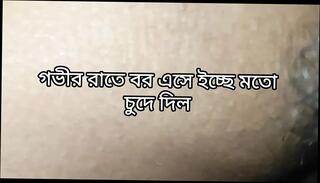 গভীর রাতে বর এসে ইচ্ছে মতো
চুদে দিল